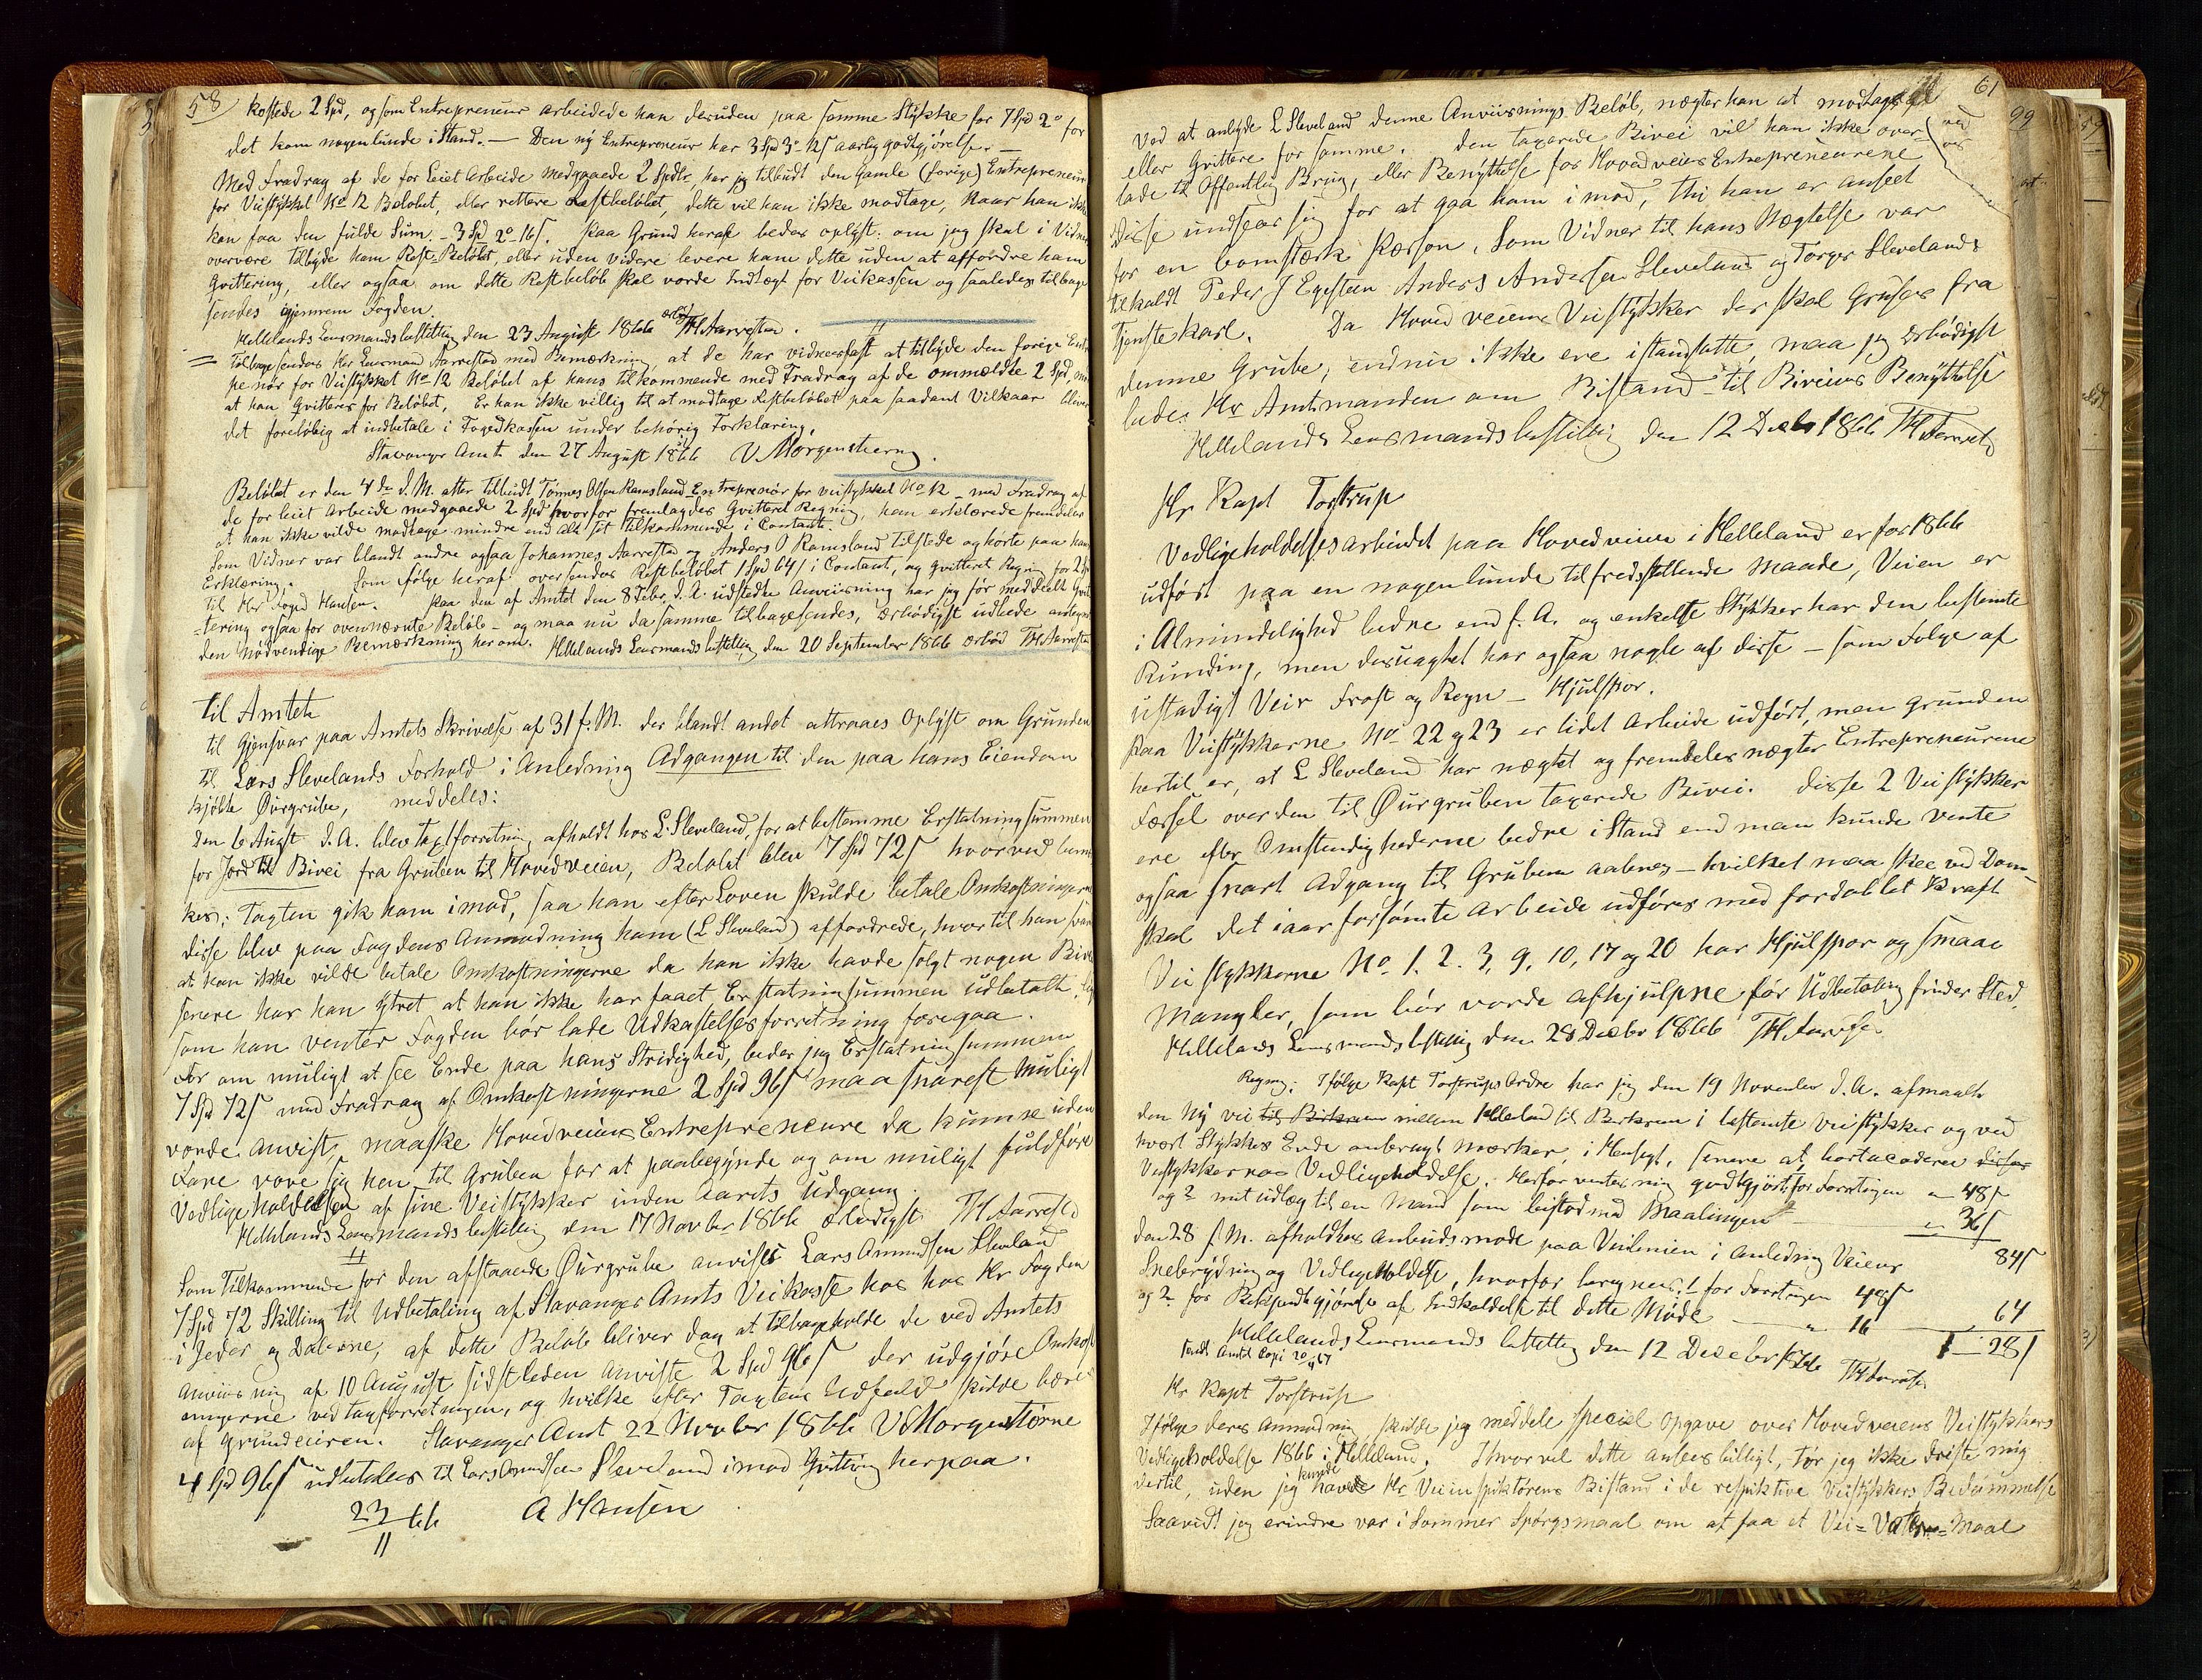 58
kostede 2 Spd, og som Entrepreneur arbeidede han desuden paa samme Stykke for 7 Spd 2 o for
det kom nogenlunde i Stand. — Den ny Entrepreneur har 3 Spd 3 o 12 s aarlig godtgjørelse. —
Med Fradrag af de for Leiet Arbeide medgaaede 2 Spdlr, har jeg tilbudt den Gamle (forige) Entrepreneur
for Veistykket No 12 Beløbet, eller rettere Restbeløbet, dette vil han ikke modtage, naar han ikke
kan faa den fulde Sum - 3 Spd 2 o 16 s. Paa Grund heraf bedes oplyst: om jeg skal i Vidners
overvære tilbyde ham Rest-Beløbet, eller uden videre levere ham dette uden at affordre ham
Qvittering, eller ogsaa om dette Restbeløb skal vorde Indlagt for Veikassen og saaledes tilbage
sendes igjennem Fogden.
Hellelands Lensmandsbestilling den 23 August 1866 ærbød TH Aarrestad.
= Tilbagesendes Hr Lensmand Aarrestad med Bemærkning, at de har vidnesfast at tilbyde den forige Entre
penør for Veistykket No 12 Beløbet af hans tilkommende med Fradrag af de ommeldte 2 Spd, mod
at han Qvitterer for Beløbet. Er han ikke villig til at modtage Restbeløbet paa saadant Vilkaar bliver
det foreløbig at indbetale i Fogedkassen under behørig Forklaring.
Stavanger Amt den 27 August 1866 V. Morgenstierne.
Beløbet er den 4de d. M. atter tilbudt Tønnes Olsen Ramsland Entreprenør for veistykket No 12 - med Fradrag af
de for leiet Arbeide medgaaede 2 Spd hvorfor fremlagdes Qvitteret Regning, han erklærede fremdeles
at han ikke vilde modtage mindre end Alt sit Tilkommende i Contant.
Som Vidner var blandt andre ogsaa Johannes Aarrestad og Anders O Ramsland tilstede og hørte paa hans
Erklæring. Som følge heraf oversendes Restbeløbet 1 Spd 64 s i Contant, og qvitteret Regning for 2 Spd
til Hr Foged Hansen. Paa den af Amtet den 8 Febr. d. A. udstedte Anviisning har jeg før meddeelt Qvit
tering ogsaa for ovennævnte Beløb - og maa nu da samme tilbagesendes, ærbødigst udbede antegnet
den nødvendige Bemærkning herom. Hellelands Lensmandsbestilling den 20 September 1866 ærbød TH Aarrestad
Til Amtet
Til Gjensvar paa Amtets Skrivelse af 31 f. M. der blandt andet attraaes Oplyst om Grunden
til Lars Slevelands Forhold i Anledning Adgangen til den paa hans Eiendom
kjøbte Øurgrube, meddeles:
Den 6 Augst d. A. blev Taxtforretning afholdt hos L. Sleveland, for at bestemme Erstatningsummen
for Jord til Bivei fra Gruben til Hovedveien, Beløbet blev 7 Spd 72 s hvorved bemær
kes: Taxten gik ham imod, saa han efter Loven skulde betale Omkostningerne
disse blev paa Fogdens Anmodning ham (L Sleveland) affordrede, hvortil han svarede
at han ikke vilde betale Omkostningerne da han ikke havde solgt nogen Bivei
senere har han ytret at han ikke har faaet Erstatningsummen udbetalt,
som han venter Fogden bør lade Udkastelsesforretning foregaa.
For om muligt at see Ende paa hans Stridighed, beder jeg Erstatningsummen
7 Spd 72 s med Fradrag af Omkostningerne 2 Spd 96 s maa snarest muligt
vorde anvist, maaske Hovedveiens Entrepreneure da kunne uden
Fare vove sig hen til Gruben for at paabegynde og om muligt fuldføre
Vedligeholdelsen af sine Veistykker inden Aarets Udgang
Hellelands Lensmandsbestilling den 17 Novbr 1866 ærbødigst TH Aarrestad
Som Tilkommende for den afstaaede Øurgrube anvises Lars Amundsen Sleveland
7 Spd 72 Skilling til Udbetaling af Stavanger Amts Veikasse hos hos Hr Fogden
i Jeder og Dalerne, af dette Beløb bliver dog at tilbageholde de ved Amtets
Anviisning af 10 August sidstleden anviste 2 Spd 96 s der udgjøre Omkost
ningerne ved taxtforretningen, og hvilke efter Taxtens Udfald skulde bæres
af grundeieren. Stavanger Amt 22 November 1866 V Morgenstierne
4 Spd 96 s udbetales til Lars Amundsen Sleveland imod Qvittering herpaa.
23/11 66 A Hansen
61
99
Ved at anbyde L Sleveland denne Anviisnings Beløb, nægter han at modtage det
eller Qvittere for samme. Den taxerede Bivei vil han ikke over-
lade til Offentlig Brug, eller Benyttelse for Hovedveiens Entrepreneurene
disse undseer sig for at gaa ham i mod, thi han er anseet
for en bomstærk Person. Som Vidner til hans Nægtelse var
tilkaldt Peder J Egesteen Anders Andersen Sleveland og Torger Slevelands
Tjenstekarl. Da Hovedveiens Veistykker der skal Gruses fra
denne Grube, endnu ikke ere istandsatte, maa jeg ærbødigst
bede Hr Amtmanden om Bistand til Biveiens Benyttelse
Hellelands Lensmandsbestilling den 12 Decbr 1866 TH Aarrestad
Hr Kapt Torstrup
Vedligeholdelsesarbeidet paa Hovedveien i Helleland er for 1866
udført paa en nogenlunde tilfredsstillende Maade, Veien er
i Almindelighed bedre end f. A. og enkelte Stykker har den bestemte
Runding, men desuagtet har ogsaa nogle af disse - som Følge af
ustadigt Veir Frost og Regn - Hjulspor.
Paa Veistykkerne No 22 og 23 er lidet Arbeide udført, men grunden
hertil er, at L Sleveland har nægtet og fremdeles nægter Entrepreneurene
Førsel over den til Øurgruben taxerede Bivei. Disse 2 Veistykker
ere efter Omstendighederne bedre i Stand end man kunde vente
ogsaa snart Adgang til Gruben aabnes - hvilket maa skee ved Dom -
skal det iaar forsømte Arbeide udføres med fordoblet Kraft
Veistykkerne No. 1. 2. 3, 9, 10, 17 og 20 har Hjulspor og smaae
Mangler, som bør vorde afhjulpne før Udbetaling finder Sted.
Hellelands Lensmandsbestilling den 28 Decbr 1866 TH Aarrestad
Regning: Ifølge Kapt Torstrups Ordre har jeg den 19 November d. A. afmaalt
den ny vei til Birkrem mellem Helleland til Berkrem i bestemte Veistykker og ved
hvert Stykkes Ende anbragt Mærker, i Hensigt, senere at bortaccodere disses
Veistykkernes Vedligeholdelse. Herfor ventes mig godtgjort for Forretningen " 48 s
og 2 mit udlæg til en Mand som bistod med Maalingen - " 36 s
84 s
Den 28 f. M. afholdtes Anbudsmøde paa Veilenien i Anledning Veiens
Snebrydning og Vedligeholdelse, hvorfor beregnes: 1 for Forretningen 48 s
og 2 for Bekjendtgjørelse af Indkaldelse til dette Møde — " 16 — 64
1 — 28 s
Hellelands Lensmandsbestilling den 12 Decebr 1866 TH Aarrestad
sendt Amtet Copi 20/4 67
Hr Kapt Torstrup
Ifølge deres Anmodning, skulde jeg meddele speciel Opgave over Hovedveiens Veistykkers
Vedligeholdelse 1866 i Helleland. Ihvorvel dette ansees billigt, tør jeg ikke driste mig
dertil, uden jeg kunde have Hr Veiinspiktørens Bistand i de respiktive Veistykkers Bedømmelse
Saavidt jeg erindre var i Sommer Spørgsmaal om at faa et Vei=Vatter=Maal